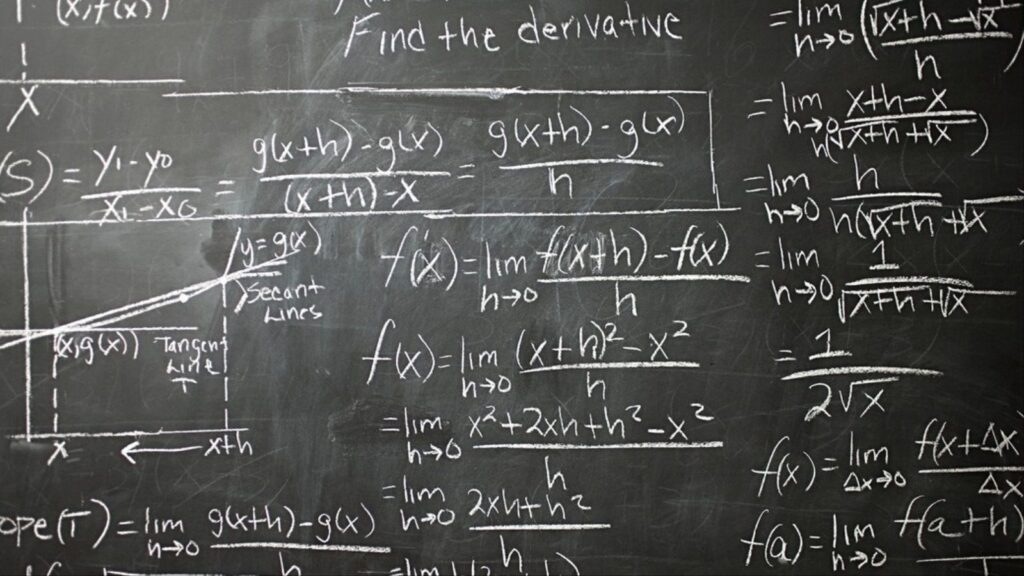 (x, f(x))
X
Find the derivative
(S) = y₁ - y₀ / x₁ - x₀ = g(x+h) - g(x) / (x+h) - x = g(x+h) - g(x) / h
y = g(x)
Secant
Lines
(x, g(x))
Tangent
Line
T
x ← x+h
ope(T) = lim h→0 g(x+h) - g(x) / h
f'(x) = lim h→0 f(x+h) - f(x) / h
f(x) = lim h→0 (x+h)² - x² / h
= lim h→0 x² + 2xh + h² - x² / h
= lim h→0 2xh + h² / h
= lim
= lim h→0 (√x+h - √x / h
= lim h→0 x+h - x / h(√x+h + √x)
= lim h→0 h / h(√x+h + √x
= lim h→0 1 / √x+h + √x
= 1 / 2√x
f(x) = lim Δx→0 f(x+Δx / Δx
f(a) = lim h→0 f(a+h)